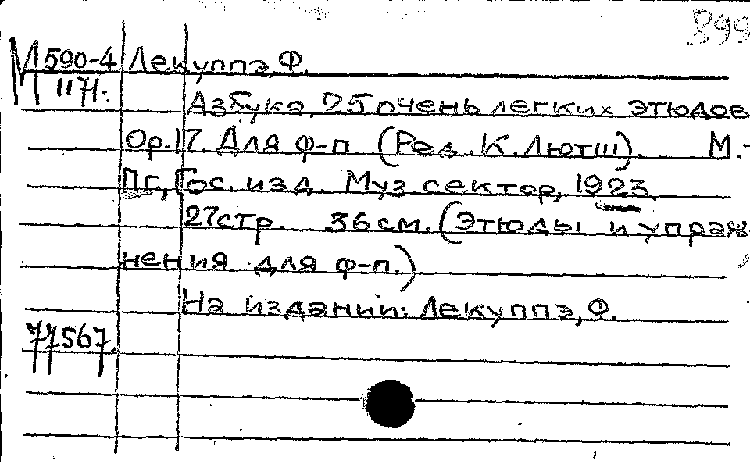 899
М 590-4 Лекуппэ, Ф.
1171.
Азбука. 25 очень легких этюдов
Op.17. Для ф-п. (Ред. К. Лютш). М.-
Пг., Гос. изд. Муз. сектор, 1923.
27 стр. 36 см. (Этюды и упраж-
нения для ф-п.)
На издании: Лекуппэ, Ф.
77567.